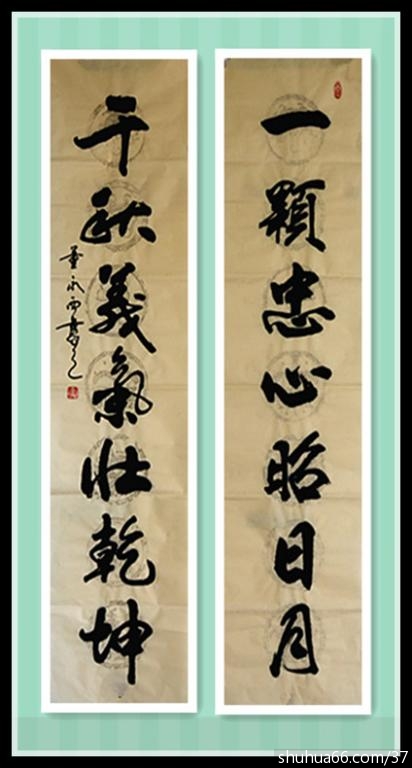 一顆忠心昭日月
千秋義氣壯乾坤
董永西書之
shuhua66.com/37